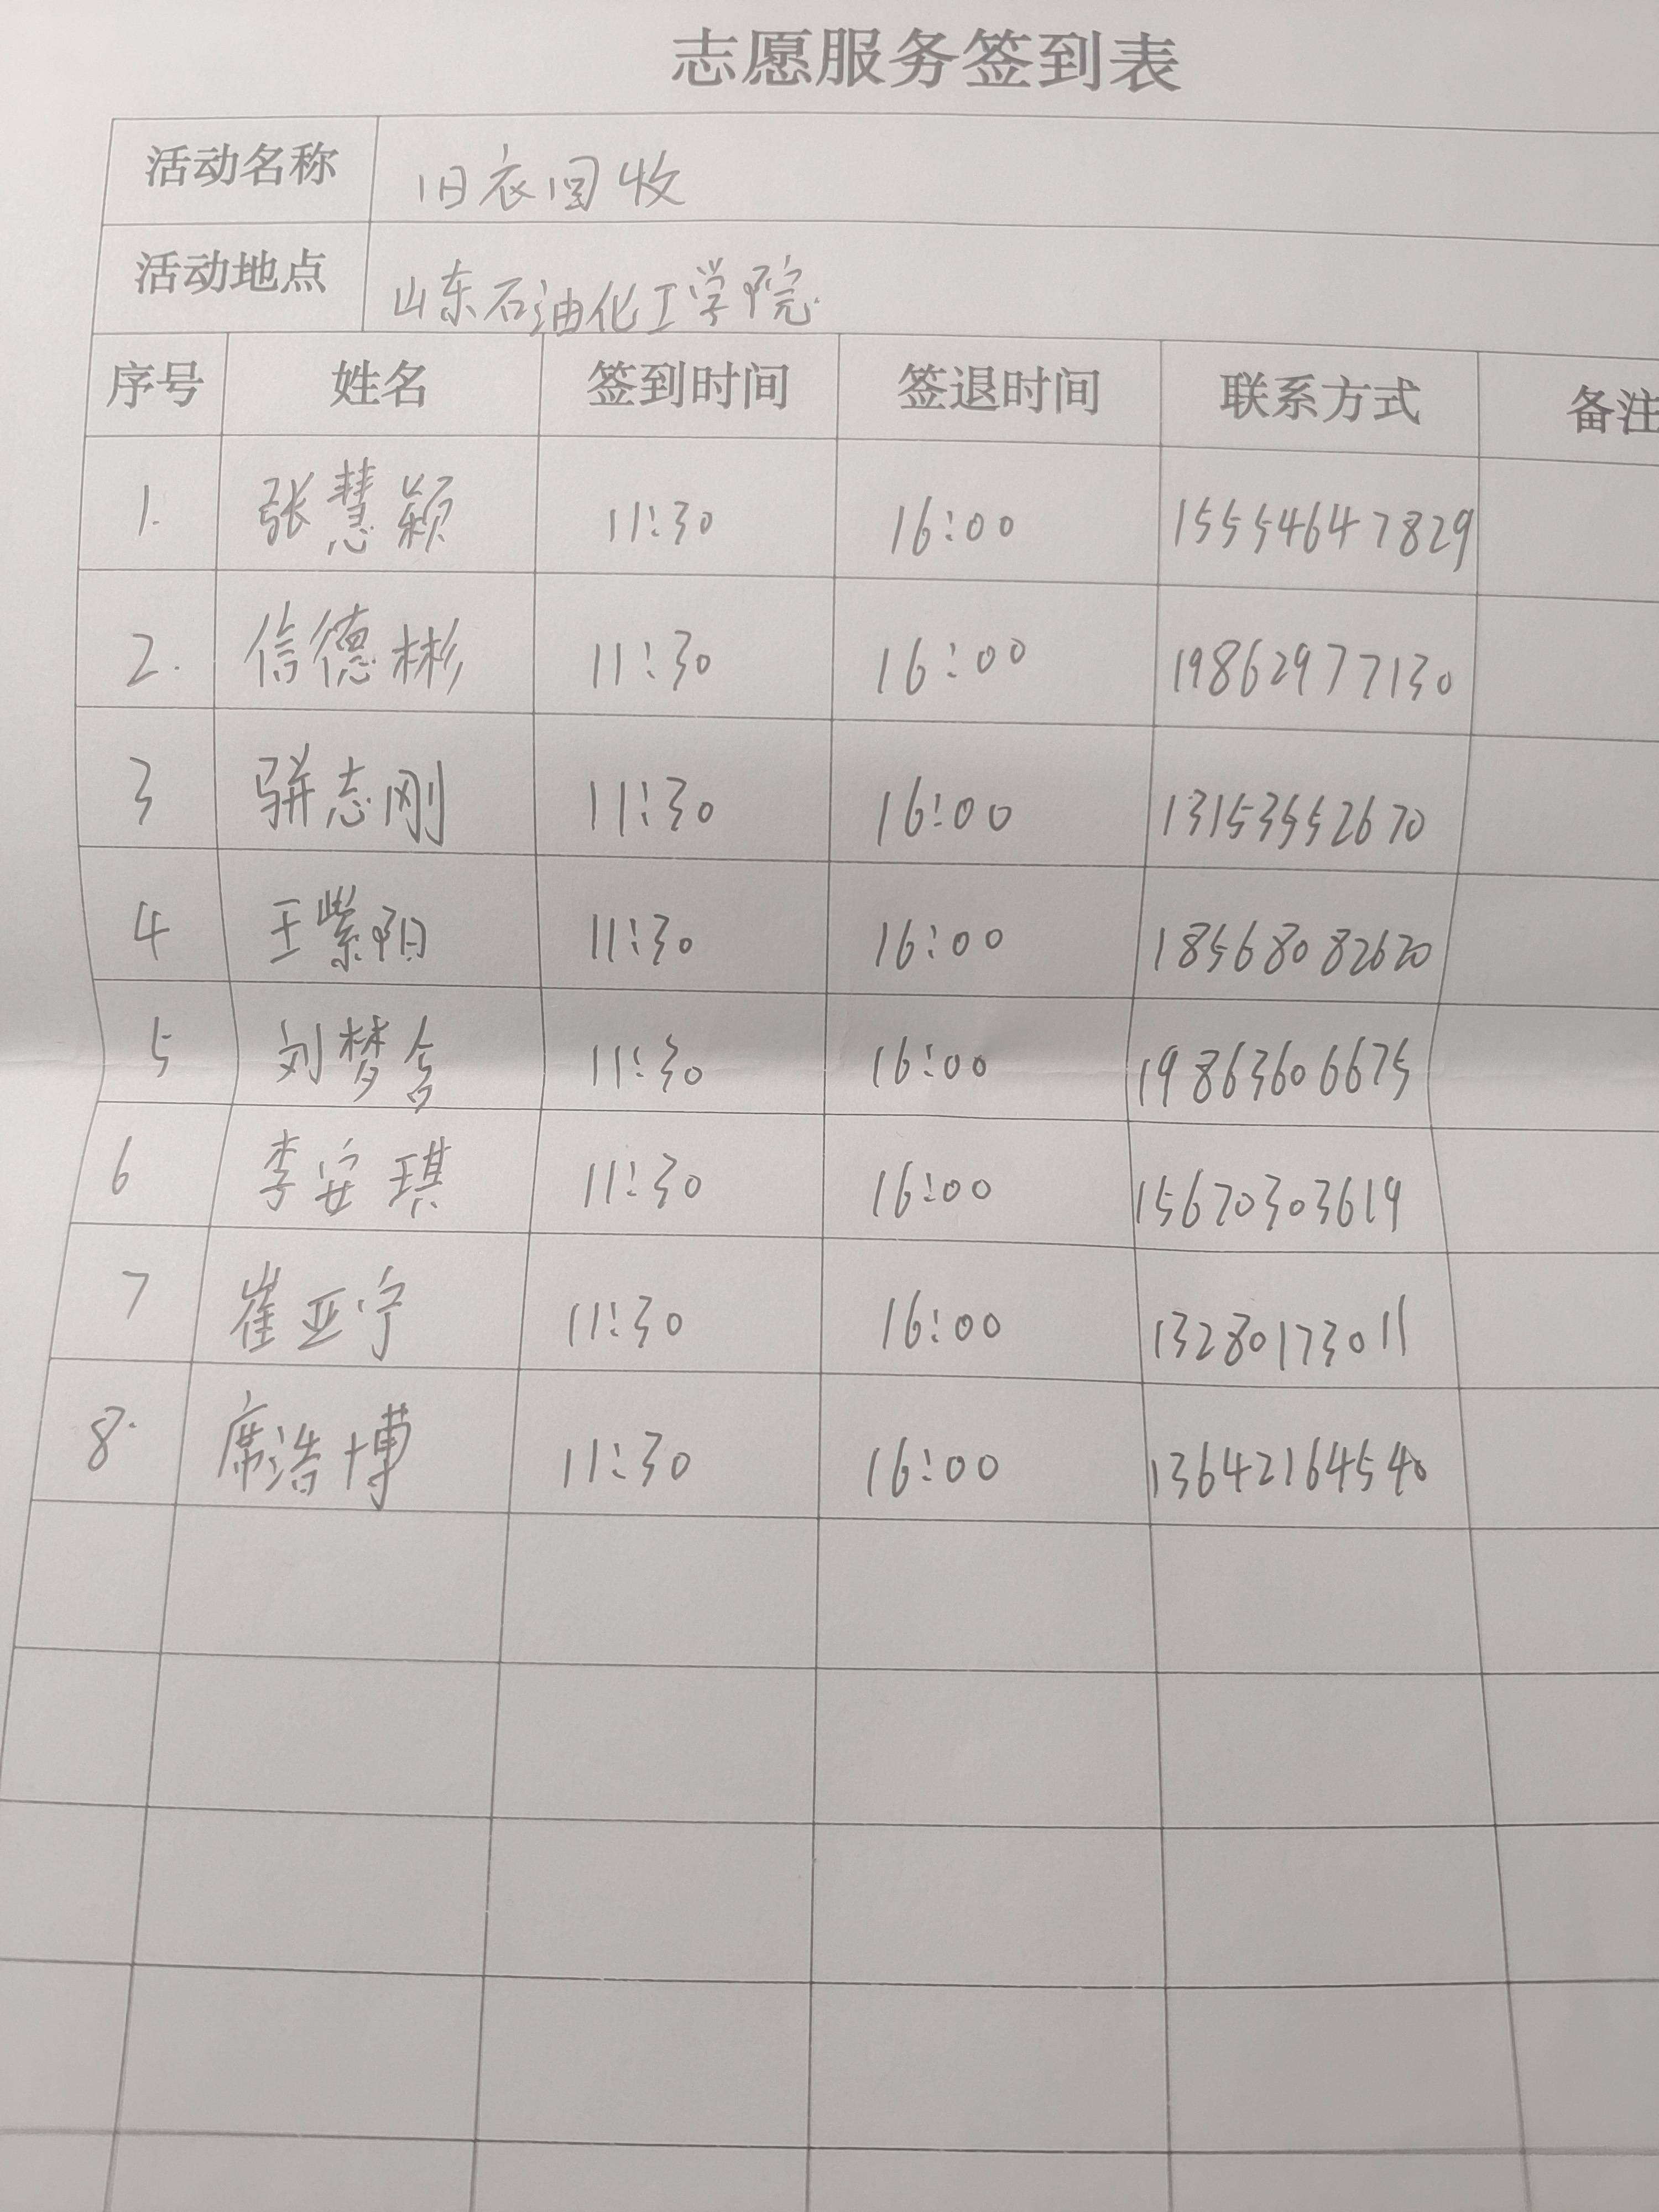 志愿服务签到表
活动名称 旧衣回收
活动地点 山东石油化工学院
序号 姓名 签到时间 签退时间 联系方式 备注
1. 张慧颖 11:30 16:00 15554647829
2. 信德彬 11:30 16:00 19862977130
3 骈志刚 11:30 16:00 13153552670
4 王紫阳 11:30 16:00 18568082620
5 刘梦含 11:30 16:00 19863606675
6 李安琪 11:30 16:00 15670303619
7 崔亚宁 11:30 16:00 13280173011
8. 席浩博 11:30 16:00 13642164540